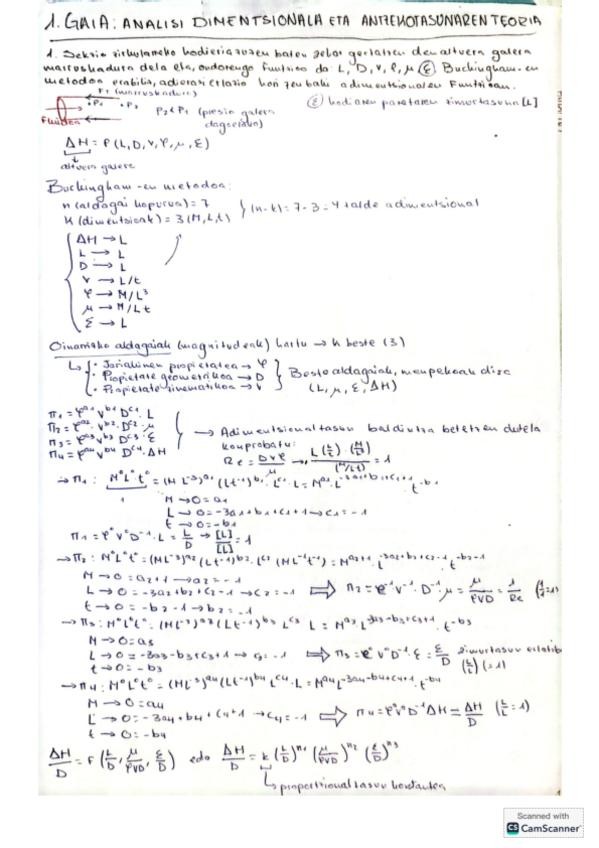 1. GAIA: ANALISI DIMENTSIONALA ETA ANTZEKOTASUNAREN TEORIA
1. Sekzio zirkularreko hodieria zuzen batean zehar gertatzen den altuera galera
marruskadura dela eta, ondorengo funtzioa da: L, D, v, ρ, μ, ε. Buckingham-en
metodoa erabiliz, adierazi erlazio hori zenbaki adimentsionalen funtzioan.
F1 (marruskadura)
P1 P2
P2 < P1 (presio galera
dago)
ε hodiaren paretaren zimurtasuna [L]
Fluidoa
ΔH = f(L, D, v, ρ, μ, ε)
altuera galera
Buckingham-en metodoa:
n (aldagai kopurua) = 7
k (dimentsioak) = 3 (M, L, t)
(n-k) = 7-3 = 4 talde adimentsional
ΔH → L
L → L
D → L
v → L/t
ρ → M/L³
μ → M/Lt
ε → L
Oinarrizko aldagaiak (magnitudeak) hartu → k beste (3)
· Jariakinen propietatea → ρ
· Propietate geometrikoa → D
· Propietate zinematikoa → v
Beste aldagaiak, menpekoak dira
(L, μ, ε, ΔH)
π1 = ρ^a1 v^b1 D^c1 · L
π2 = ρ^a2 v^b2 D^c2 · μ
π3 = ρ^a3 v^b3 D^c3 · ε
π4 = ρ^a4 v^b4 D^c4 · ΔH
→ Adimentsionaltasun baldintza betetzen dutela
konprobatu:
Re = Dvρ/μ → L(L/t)·(M/L³)/(M/Lt) = 1
→ π1: M⁰L⁰t⁰ = (ML⁻³)^a1 (Lt⁻¹)^b1 · L^c1 · L = M^a1 · L^-3a1+b1+c1+1 · t^-b1
1
M → 0 = a1
L → 0 = -3a1+b1+c1+1 → c1 = -1
t → 0 = -b1
π1 = ρ⁰v⁰D⁻¹ · L = L/D → [L]/[L] = 1
→ π2: M⁰L⁰t⁰ = (ML⁻³)^a2 (Lt⁻¹)^b2 · L^c2 (ML⁻¹t⁻¹) = M^a2+1 · L^-3a2+b2+c2-1 · t^-b2-1
M → 0 = a2+1 → a2 = -1
L → 0 = -3a2+b2+c2-1 → c2 = -1
t → 0 = -b2-1 → b2 = -1
⇒ π2 = ρ⁻¹v⁻¹ · D⁻¹ · μ = μ/ρvD = 1/Re
→ π3: M⁰L⁰t⁰ = (ML⁻³)^a3 (Lt⁻¹)^b3 L^c3 L = M^a3 L^-3a3+b3+c3+1 · t^-b3
M → 0 = a3
L → 0 = -3a3-b3+c3+1 → c3 = -1
t → 0 = -b3
⇒ π3 = ρ⁰v⁰D⁻¹ · ε = ε/D zimurtasun erlatib
(L/L) (=1)
→ π4: M⁰L⁰t⁰ = (ML⁻³)^a4 (Lt⁻¹)^b4 L^c4 · L = M^a4 L^-3a4-b4+c4+1 · t^-b4
M → 0 = a4
L → 0 = -3a4+b4+c4+1 → c4 = -1
t → 0 = -b4
⇒ π4 = ρ⁰v⁰D⁻¹ΔH = ΔH/D (L/L = 1)
ΔH/D = f(L/D, μ/ρvD, ε/D) edo ΔH/D = k (L/D)^n1 (μ/ρvD)^n2 (ε/D)^n3
proportzionaltasun konstantea
Scanned with
CS CamScanner